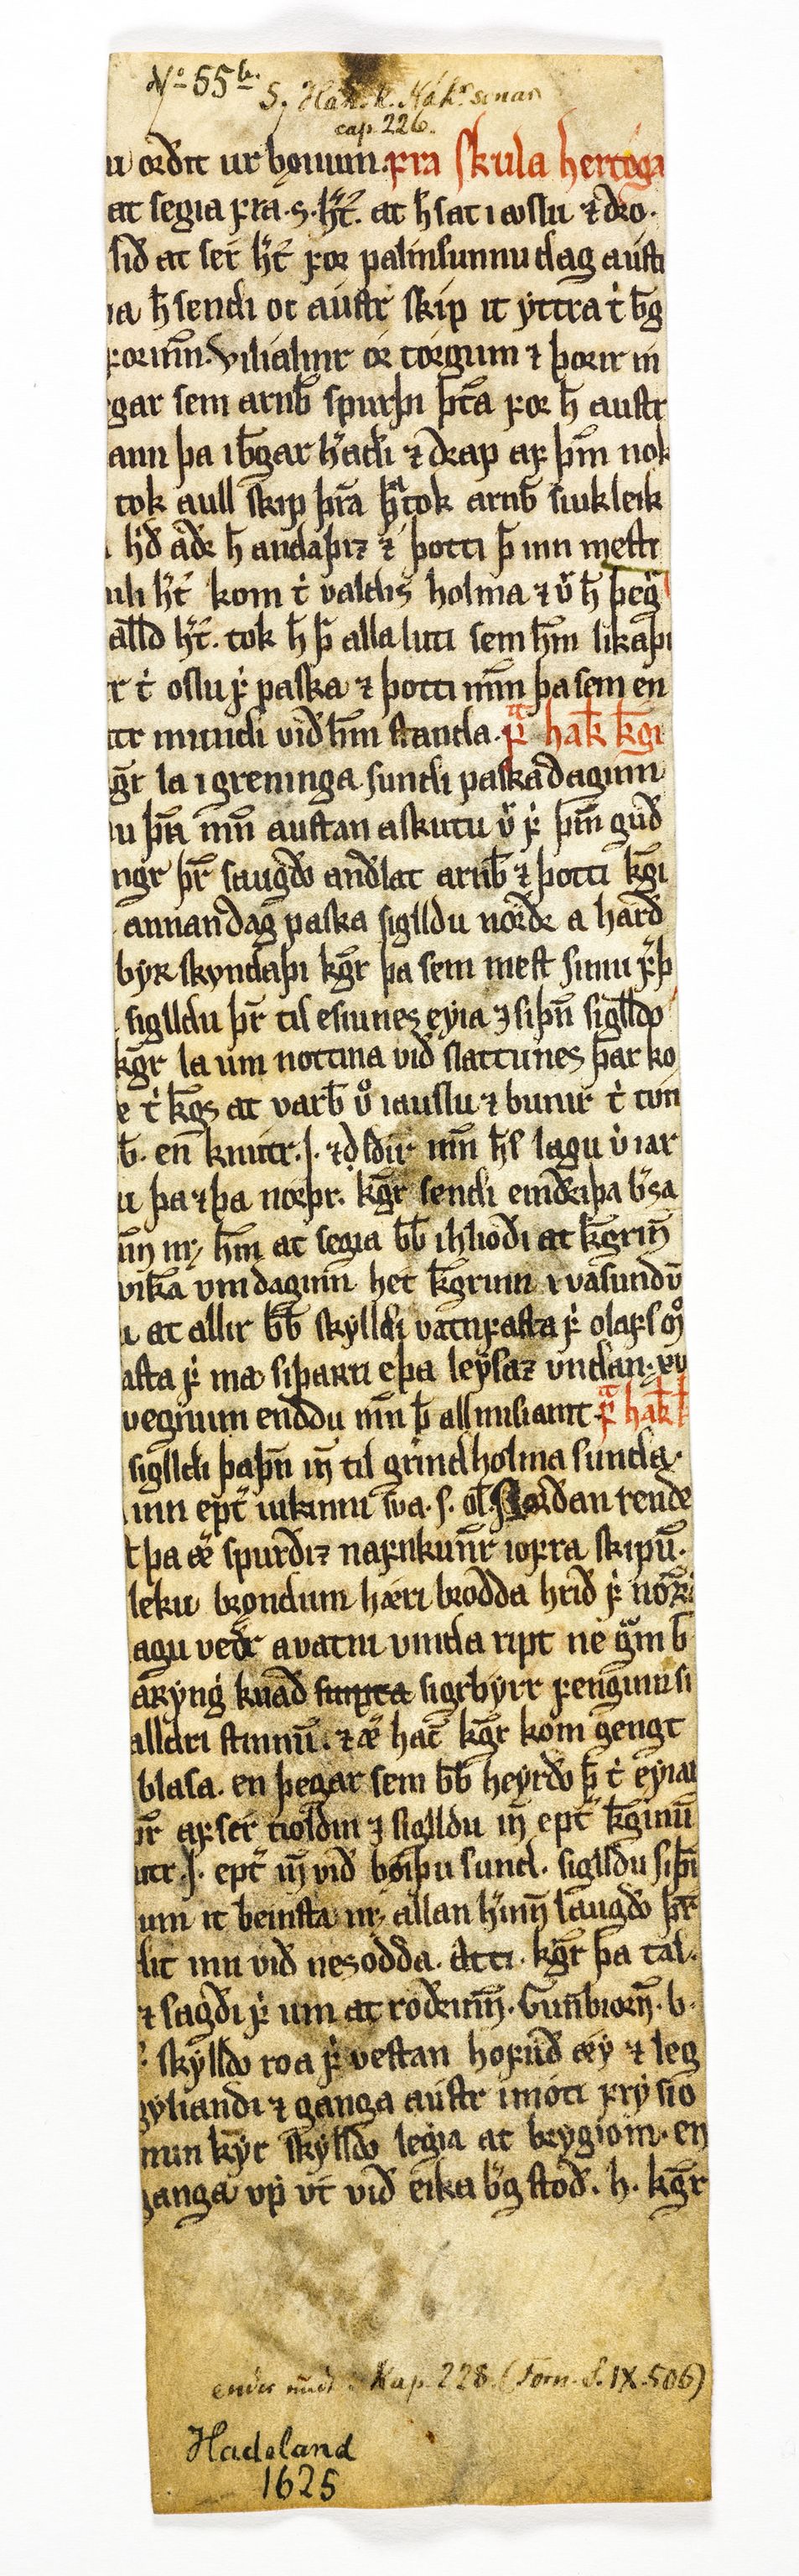 No 55b.
S. Hák. k. Hák.sonar
cap. 226.
u ordit ur bønum. fra skula hertoga
at segia fra .s. ht̄. at h̄ sat i oslu ⁊ dro.
sid at ser ht̄ for palmsunnudag austr
a h̄ sendi oc austr skip it yttra t̄ b̄g
forum̄. vilialmr or torgum ⁊ þorir in
gar sem arnb̄ spurþi þt̄a for h̄ austr
ann þa i b̄gar hadi ⁊ drap af þm̄ nok
tok aull skip þra h̄ tok arnb̄ siukleik
hd̄ adr h̄ andaþiz ⁊ þotti þ̄ inn mesti
uli ht̄ kom t̄ valdis holma ⁊ v̄ h̄ þeg
alld ht̄. tok h̄ þ̄ alla luti sem hm̄ likaþi
r t̄ oslu f̄ paska ⁊ þotti mn̄ þa sem en
ttr mundi vid hm̄ standa. f̄ hak̄ kḡi
gr̄ la i greninga sundi paskadagum
u þra mn̄ austan a skutu v̄ f̄ þm̄ gud
ngr þr̄ saugdo andlat arnb̄ ⁊ þotti kḡi
annan dag paska siglldu nordr a hard
byr skyndaþi kḡr þa sem mest sinu f̄ þ
siglldu þr̄ til esiunes eyia ⁊ siþn̄ siglldo
kḡr la um nottina vid slattunes þar ko
e t̄ kḡs at varb̄ v̄ i auslu ⁊ bunir t̄ tun
b̄. en knutr .j. ⁊ adrir mn̄ hs̄ lagu v̄ iar
u þa ⁊ þa norþr. kḡr sendi eindriþa b̄sa
un m; hm̄ at segia bb̄ i hliodi at kḡrin̄
vika um daginn het kḡrinn i vasundū
a at allir bb̄ skylldi vatnfasta f̄ olafs m
asta f̄ ma siþarri eþa leysaz undan. xv
vegnum enddu mn̄ þ̄ all misiamt. f̄ hak̄ k̄
siglldi þaþn̄ in̄ til grindholma sunda.
inn ept̄ iukinni sva .s. ol̄. Nordan rende
t þa er spurdiz nafnkunr̄ iofra skipū.
leku brondum hæri brodda hrid f̄ nor
agu vedr a vatni vinda ript ne gm̄ b̄
aryng knad sigrbyrr fenginn si
alldri stinnū. ⁊ er hac̄ kḡr kom gengt
blasa. en þegar sem bb̄ heyrdo þ̄ t̄ eyiar
r̄ af ser tioldin ⁊ siglldu in̄ ept̄ kḡinū
utr .j. ept̄ in̄ vid boiþu sund. siglldu siþn̄
um it beinsta m; allan hinn̄ laugdo þr̄
lit inn vid nesodda. Atti kḡr þa tal.
⁊ sagdi f̄ um at rodrinn̄. Gunbiorn̄. b.
skylldo roa f̄ vestan hofud ey ⁊ leg
gyliandi ⁊ ganga austr imoti frysio
mun kyt skylldo legia at brygiom. en
ganga up ut vid eika b̄g stod. h. kḡr
ender midt i Kap. 228. (Forn. S. IX. 506)
Hadeland
1625